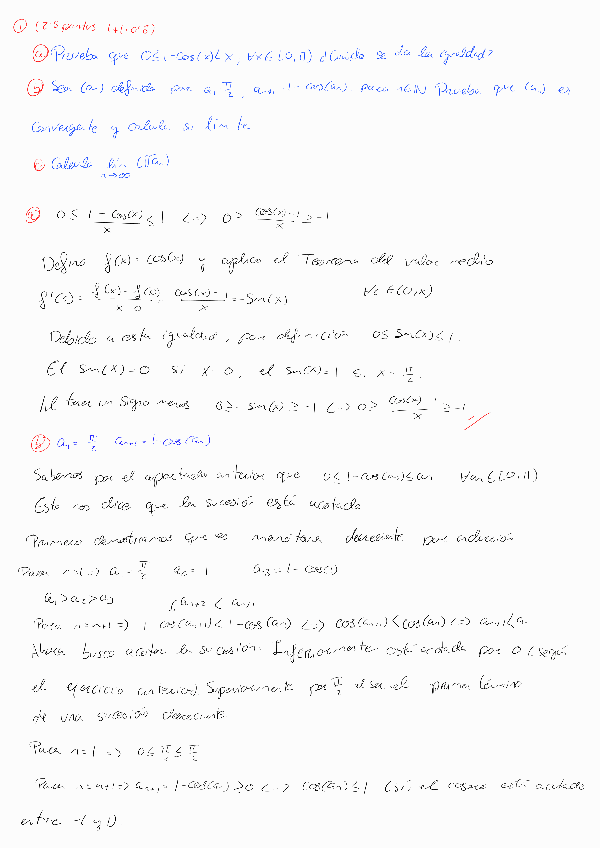 ① (2.5 puntos 1+1+0.5)
ⓐ Prueba que 0≤1-cos(x)<x, ∀x∈[0,π) ¿Cuándo se da la igualdad?
ⓑ Sea (an) definida por a₁ π/2, an+1 1-cos(an) para n∈ℕ Prueba que (an) es
convergente y calcula su límite
ⓒ Calcula lim n→∞ (ⁿ√an)
ⓐ 0 ≤ 1-cos(x)/x ≤ 1 <=> 0 ≥ cos(x)-1/x ≥ -1
Defino f(x)=cos(x) y aplico el Teorema del valor medio
f'(c)= f(x)-f(0)/x 0, cos(x)-1/x =-sin(x) ∀c∈(0,x)
Debido a esta igualdad, por definición 0≤ sin(x)<1.
El sin(x)=0 si x 0, el sin(x)=1 si x = π/2.
Al tener un signo menos 0≥-sin(x) ≥ -1 <=> 0≥ cos(x)-1/x ≥ -1
ⓑ a₁= π/2 an+1=1-cos(an)
Sabemos por el apartado anterior que 0≤1-cos(an)≤an ∀an∈[0,π)
Esto nos dice que la sucesión está acotada
Primero demostramos que es monótona decreciente por inducción
Para n=1=> a₁ π/2 a₂=1 a₃=1-cos(1)
a₁>a₂>a₃ ¿an+2 < an+1
Para n=n+1=> 1 cos(an+1)<1-cos(an) <=> cos(an+1)<cos(an) <=> an+1<an
Ahora busco acotar la sucesión. Inferiormente está acotada por 0 (según
el ejercicio anterior) Superiormente por π/2 al ser el primer término
de una sucesión decreciente
Para n=1 => 0≤ π/2 ≤ π/2
Para n=n+1=> an+1=1-cos(an) ≥0 <=> cos(an)≤1 (sí) el coseno está acotado
entre -1 y 1)